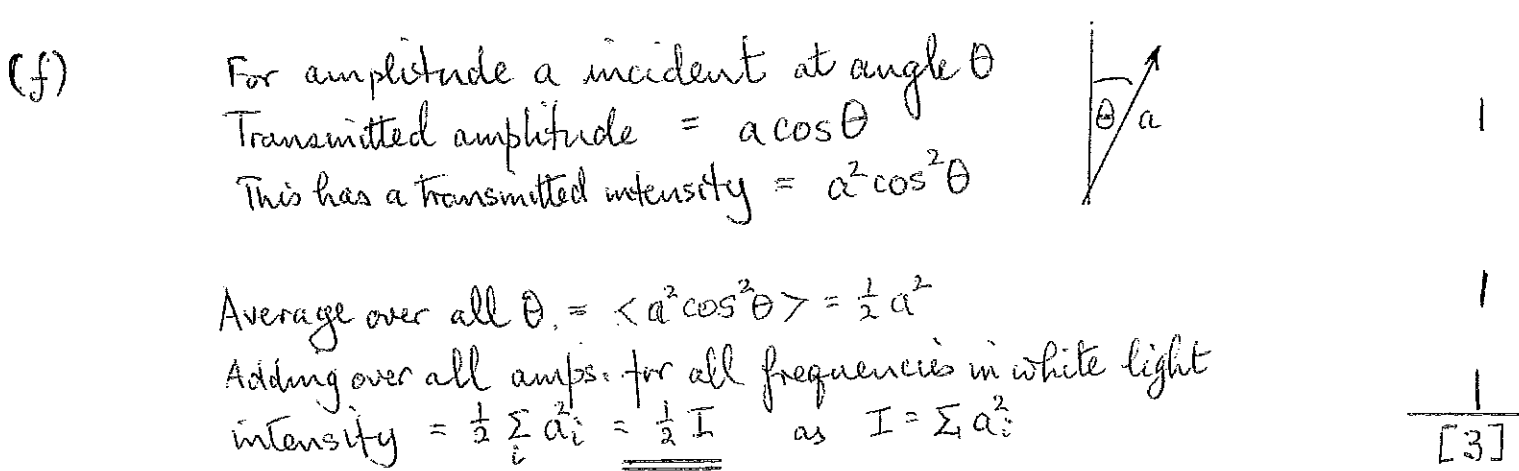 (f) For amplitude a incident at angle θ
Transmitted amplitude = a cos θ 1
θ a
This has a transmitted intensity = a² cos² θ
Average over all θ. = <a² cos² θ> = ½ a² 1
Adding over all amps. for all frequencies in white light
intensity = ½ Σᵢ aᵢ² = ½ I as I = Σ aᵢ² 1
[3]